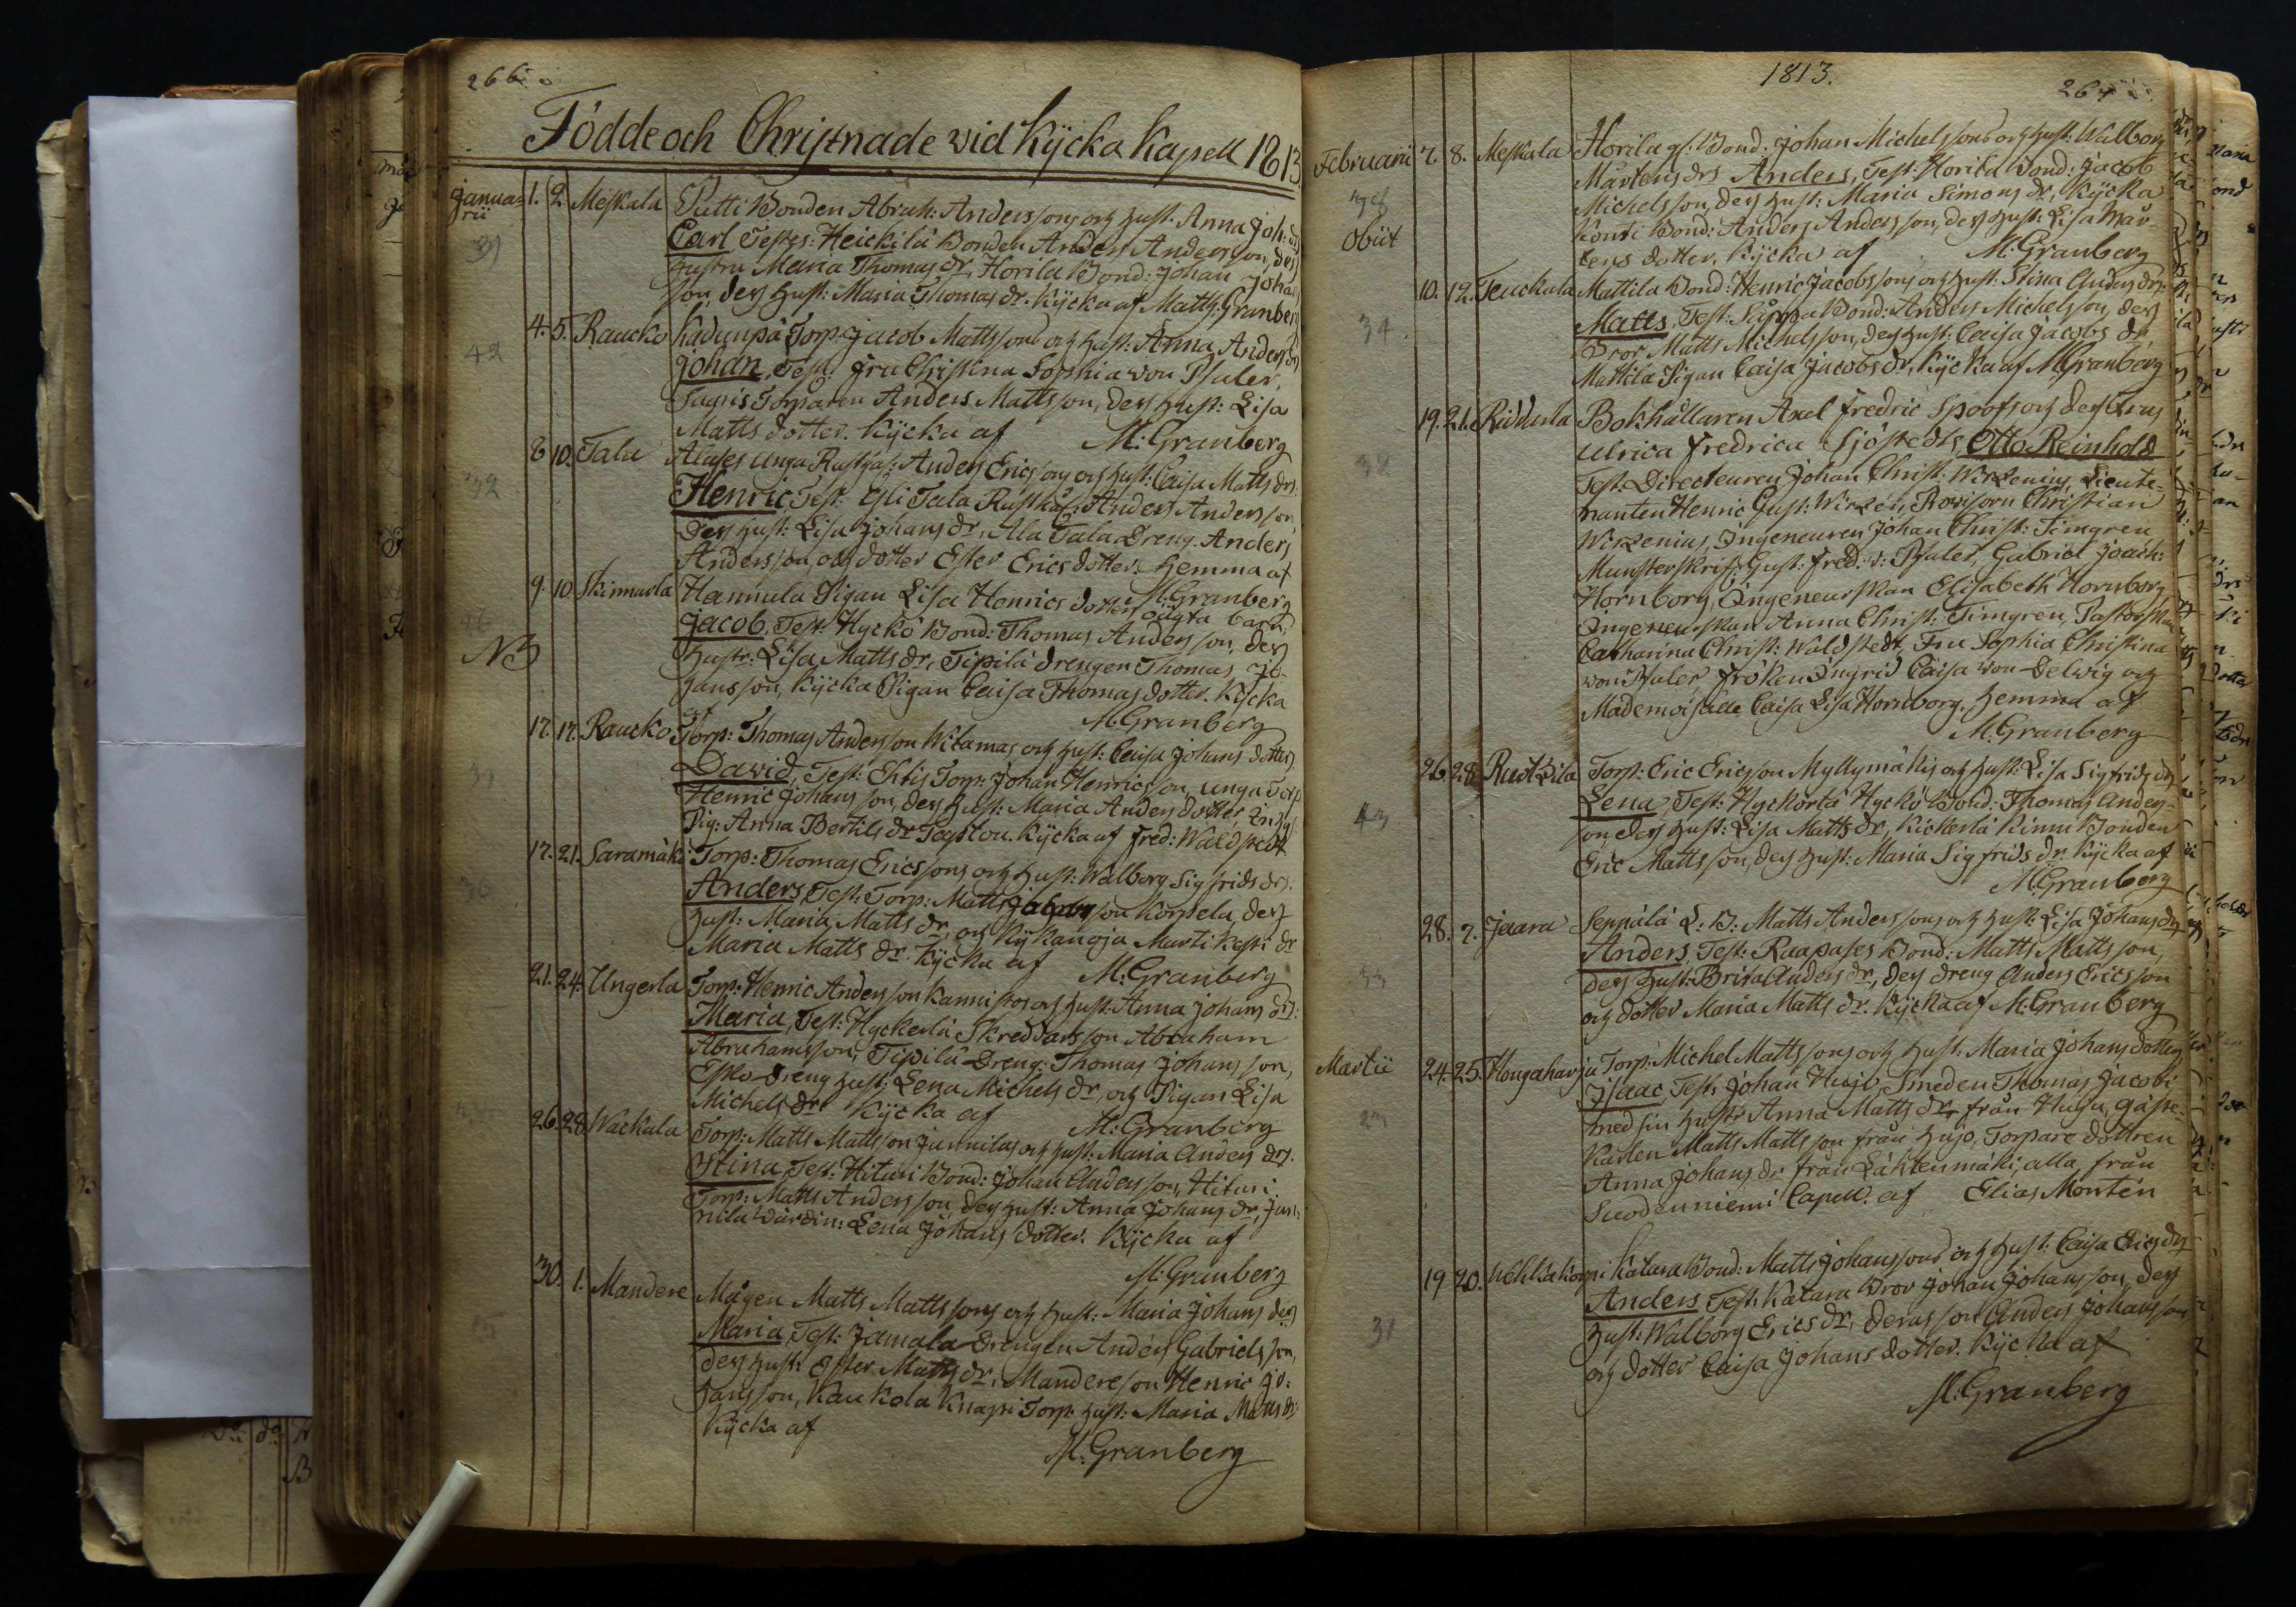 266
Födde och Christnade vid Kycka Kapell 1813.
Januarii 1. 2. Meskala Putti Bonden Abrah: Anderssons och Hust. Anna Joh: drs
39 Carl Testes: Heickilä Bonden Anders Andersson, des
hustru Maria Thomas dr, Horila Bond: Johan Johans
son, des Hust: Maria Thomas dr. Kycka af Matths: Granberg
4. 5. Raucko Kadunpä Torp: Jacob Mattssons och hust: Anna Anders drs
42 Johan, Test: Fru Christina Sophia von Psaler,
Torparen Anders Mattsson, des hust: Lisa
Matts dotter. Kycka af M: Granberg
8 10. Tala Alases unga Rusth: Anders Ericssons och hust: Caisa Matts drs.
32 Henric, Test: Yli Tala Rusth: Anders Andersson
des hust: Lisa Johans dr, Ala Tala Dreng. Anders
Andersson, och dotter Ester Erics dotter. hemma af
M: Granberg
9. 10. Skinnarla Hannula Pigan Lisa Henrics dotters oägta barn,
Jacob, Test: Hyckö Bond: Thomas Andersson, des
NB hustr: Lisa Matts dr, Tipilä drengen Thomas Jo-
hansson, Kycka Pigan Caisa Thomas dotter. Kycka
af M: Granberg
17. 17. Raucko Torp: Thomas Andersson Witamas och hust: Caisa Johans dotters
David, Test: Torp: Johan Henricsson, unga Torp
Henric Johansson, des hust: Maria Anders dotter,
Pig: Anna Bertils dr. Kycka af Fred: Waldstedt
17. 21. Saramäki Torp: Thomas Ericssons och hust: Walborg Sigfrids drs:
36 Anders, Test: Torp: Matts son Korpela, des
hust: Maria Matts dr, och Kykanoja Marti
Maria Matts dr. Kycka af M: Granberg
21. 24. Ungerla Torp: Henric Andersson Kannistos och hust: Anna Johans drs:
Maria, Test: Hyckerlä Skreddarsson Abraham
Abrahamsson, Tipilä Dreng: Thomas Johansson,
Esko Dreng hust: Lena Michels dr, och Pigan Lisa
Michels dr. Kycka af M: Granberg
26. 28. Wackala Torp: Matts Mattsson Junnilas och hust: Maria Anders drs.
Stina, Test: Hituri Bond: Johan Andersson, Hituri
Torp: Matts Andersson, des hust: Anna Johans dr, Jun-
nila Lena Johans dotter. Kycka af
M: Granberg
30. 1. Mandere Mågen Matts Mattssons och hust: Maria Johans drs
Maria, Test: Jamala Drengen Anders Gabrielsson,
des hust: Ester Matts dr, Mandere son Henric Jo-
hansson, Kaukola Knapi Torp: hust: Maria Matts dr:
Kycka af
M: Granberg
1813.
267
Februarii 7. 8. Meskala Horila Bond: Johan Michelssons och hust: Walborg
38 Mårtens drs Anders, Test: Horila Bond: Jacob
Michelsson, des hust: Maria Simons dr, Kycka
Obiit Konti Bond: Anders Andersson, des hust: Lisa Mår-
tens dotter. Kycka af M: Granberg
10. 12. Teuckula Mattila Bond: Henric Jacobssons och hust: Stina Anders drs:
34 Matts, Test: Bond: Anders Michelsson, des
Bror Matts Michelsson, des hust: Caisa Jacobs dr,
Mattila Pigan Caisa Jacobs dr, Kycka af M: Granberg
19. 21. Riddarla Bokhållaren Axel Fredric Spoofs och des Frus
38 Ulrica Fredrica Sjöstedts, Otto Reinhold
Test: Directeuren Johan Christ: Wirzenius, Lieute-
nanten Henric Gust: Wirzén, Provisorn Christian
Wirzenius, Ingeneuren Johan Christ: Timgren
Munsterskrif: Gust: Fred: v: Psaler, Gabriel Joach:
Hornborg, Ingeneurskan Elisabeth Hornborg
Ingeneurskan Anna Christ: Timgren, Pastorskan
Catharina Christ: Waldstedt, Fru Sophia Christina
von Psaler Fröken Ingrid Caisa von Delwig och
Mademoiselle Caisa Lisa Hornborg. hemma af
M: Granberg
26. 28. Ruotzila Torp: Eric Ericsson Myllymäkis och hust: Lisa Sigfrids drs
43 Lena, Test: Hyckerlä Hyckö Bond: Thomas Anders-
son des hust: Lisa Matts dr, Kickerlä Kinni Bonden
Eric Mattsson, des hust: Maria Sigfrids dr. Kycka af
M: Granberg
28. 7. Jaara Seppälä L: B: Matts Anderssons och hust: Lisa Johans drs
33 Anders, Test: Raapases Bond: Matts Mattsson,
des hust: Brita Anders dr, des dreng Anders Ericsson
och dotter Maria Matts dr. Kycka af M: Granberg
Martii 24. 25. Hongaharju Torp: Michel Mattssons och hust: Maria Johans dotters
23 Isaac, Test: Johan Hujo, Smeden Thomas Jacobi
med sin hustr: Anna Matts dr, från Huju, gåsse-
karlen Matts Mattsson från Hujo, Torpare dottren
Anna Johans dr från Lähtenmäki, alla från
Suodenniemi Capell. af Elias Montén
19 20. Katara Bond: Matts Johanssons och hust: Caisa Erics drs
31 Anders, Test: Katara Bror Johan Johansson, des
hust: Walborg Erics dr, deras son Anders Johansson
och dotter Caisa Johans dotter. Kycka af
M: Granberg